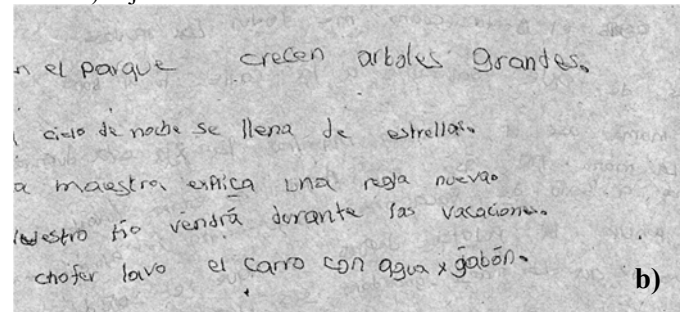 n el parque crecen arboles grandes.
cielo de noche se llena de estrellas.
a maestra explica una regla nueva.
tío vendrá durante las vacaciones.
chofer lavo el carro con agua y jabón.
b)